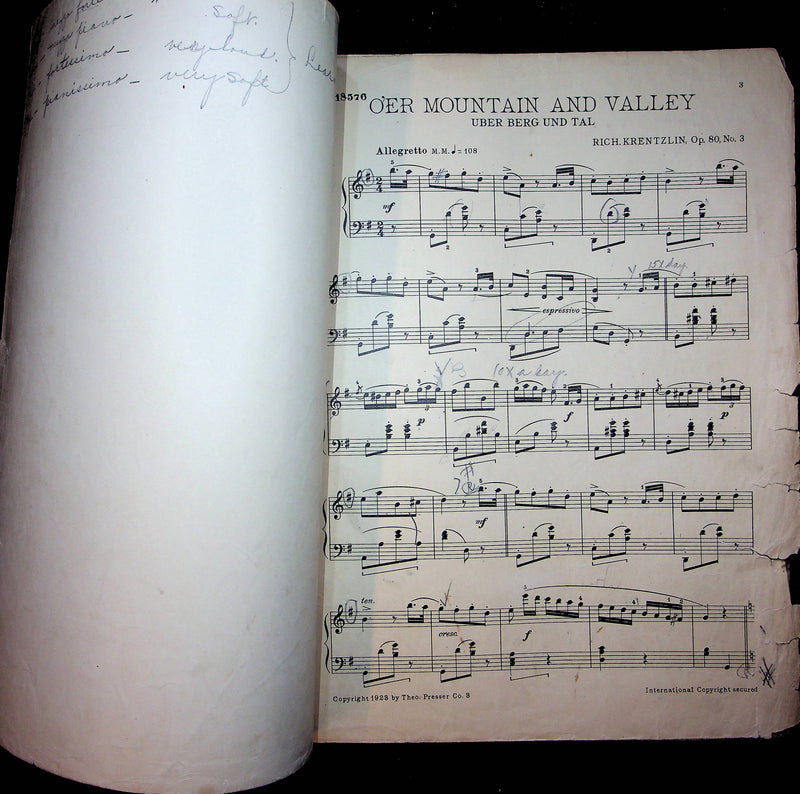 mezzo piano —
soft.
fortissimo — very loud.
pianissimo — very soft
3
18576
O'ER MOUNTAIN AND VALLEY
UBER BERG UND TAL
RICH. KRENTZLIN, Op. 80, No. 3
Allegretto M.M. ♩= 108
mf
15X day
espressivo
10X a day.
p
f
p
mf
ten.
cresc.
f
Copyright 1923 by Theo. Presser Co. 3
International Copyright secured